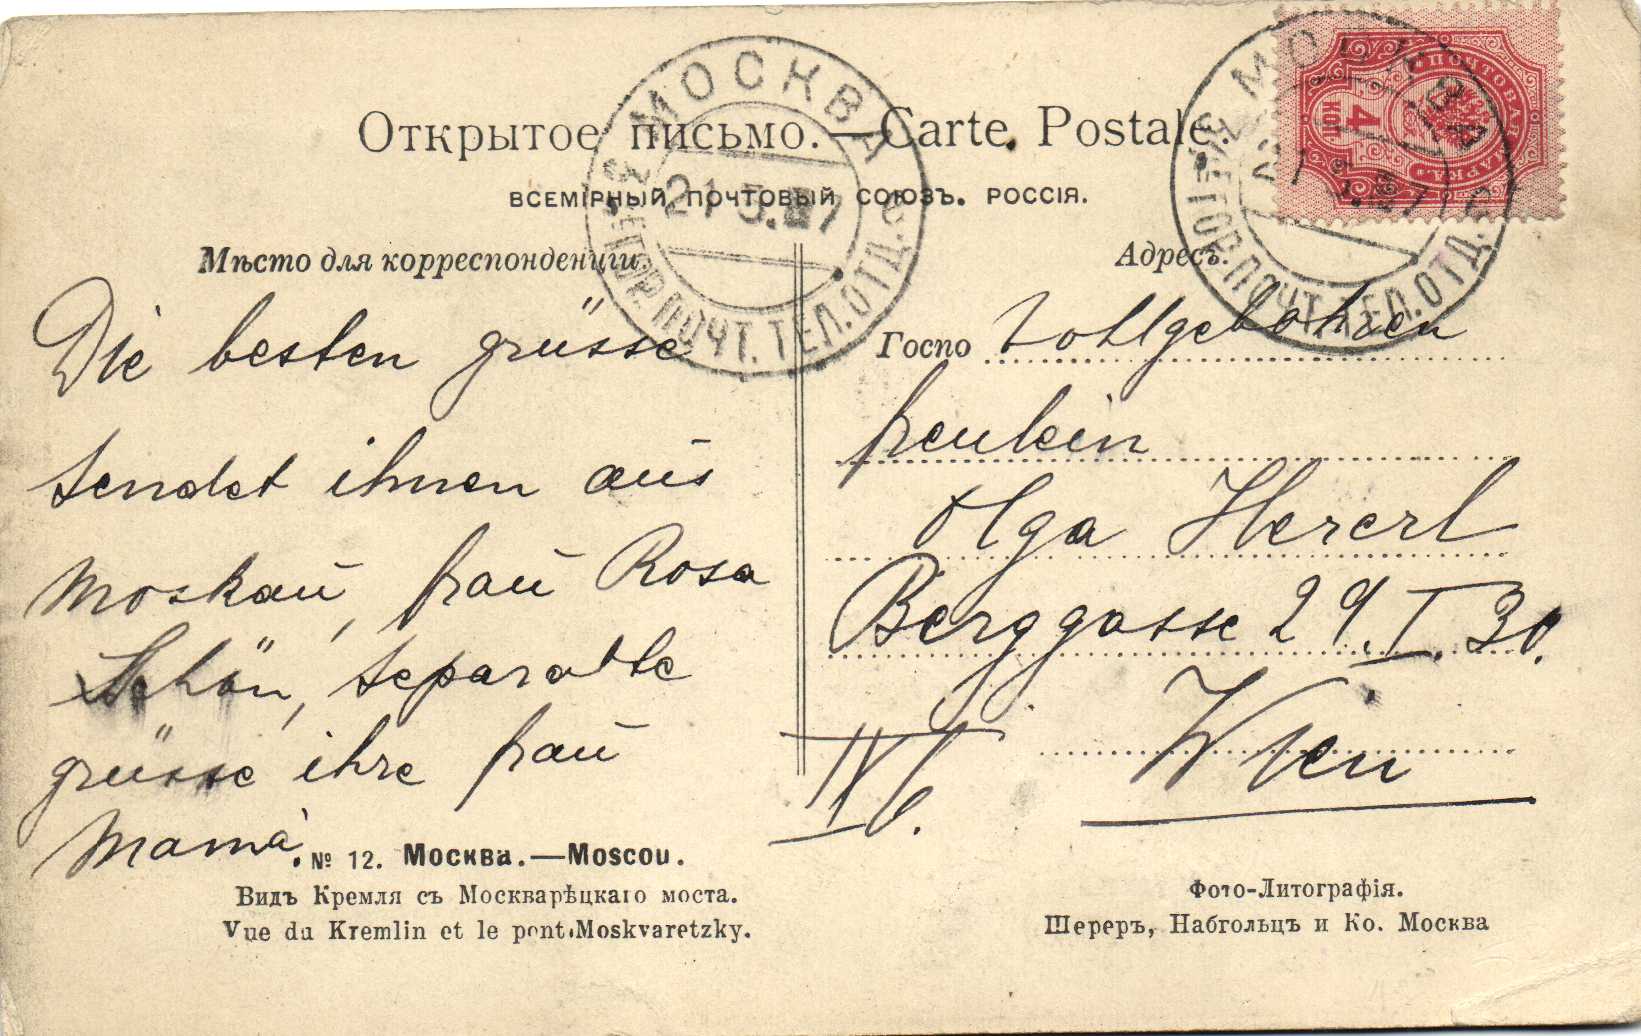 Открытое письмо. — Carte Postale.
ВСЕМІРНЫЙ ПОЧТОВЫЙ СОЮЗЪ. РОССІЯ.
Мѣсто для корреспонденціи.
Адресъ.
МОСКВА
ГОР. ПОЧТ. ТЕЛ. ОТД.
21 5. 7
МОСКВА
ГОР. ПОЧТ. ТЕЛ. ОТД.
21 5. 7
ПОЧТОВАЯ МАРКА
4 КОП
Die besten grüsse
sendet ihnen aus
Moskau, frau Rosa
Schön, separatte
grüsse ihre frau
Mama.
Госпо
freulein
Olga Hererl
Berggasse 29. I. 30.
Wien
№ 12. Москва. — Moscou.
Видъ Кремля съ Москварѣцкаго моста.
Vue du Kremlin et le pont Moskvaretzky.
Фото-Литографія.
Шереръ, Набгольцъ и Ко. Москва